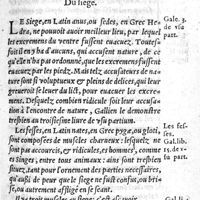 Du siege.
LE Siege, en Latin anus, ou sedes, en Grec He
dra, ne pouuoit auoir meilleur lieu, par lequel
les excremens du ventre fussent euacuez. Toutes
fois il n'y ha d'aucuns, qui ont accusé nature, de ce
qu'ell' n'ha pas ordonné, que les excremens fussent
euacuez, par les piedz. Mais telz accusateurs de na-
ture sont si voluptueux & pleins de delices, qu'il leur
greueroit de se leuer du lict, pour euacuer les excre-
mens. Desquelz combien ridicule soit leur accusa-
tion à l'encontre de nature, Galien le demonstre
tresbien au troisiesme liure de vsu partium.
Gale. 3.
de vsu
part.
Les fesses, en Latin nates, en Grec pyga, ou gloti,
sont composées de muscles charneux: lesquelz ne
sont pas accourcis, & ridicules, es hommes, comme
es Singes, entre tous animaux: ains sont tresbien
seants, tant pour l'ornement des parties honteuses,
qu'aussi de peur que le siege ne fust contus, ou bri-
sé, ou autrement affligé en se seant.
Les fes-
ses.
Gal.lib.
15. de v-
su part.